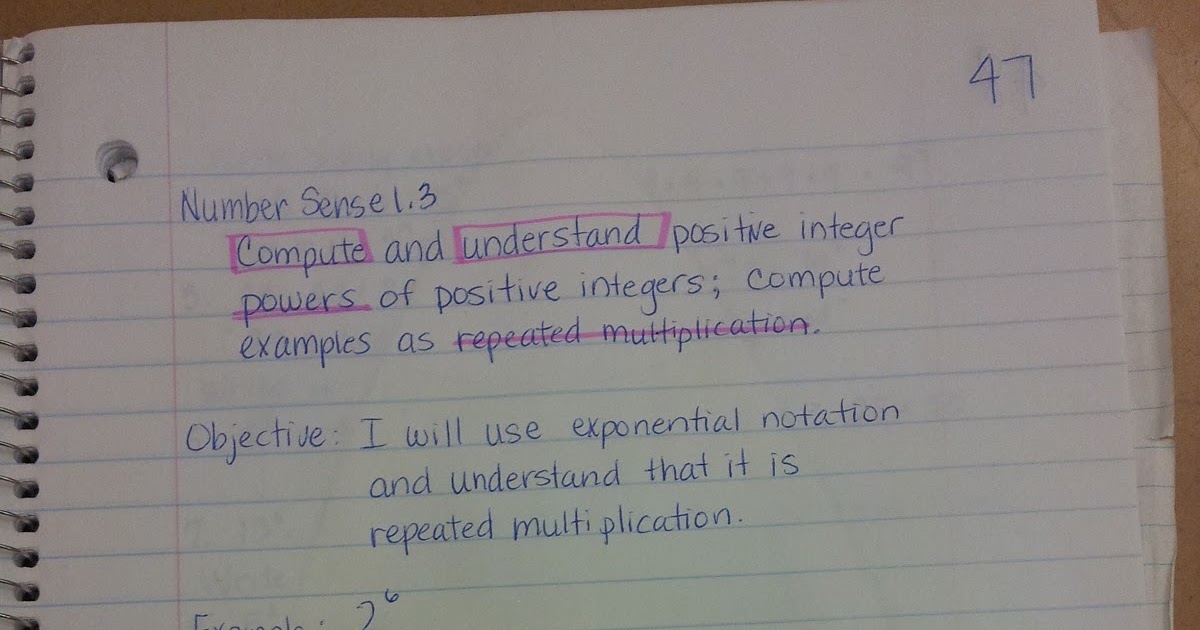 47
Number Sense 1.3
Compute and understand positive integer
powers of positive integers; compute
examples as repeated multiplication.
Objective: I will use exponential notation
and understand that it is
repeated multiplication.
Example: